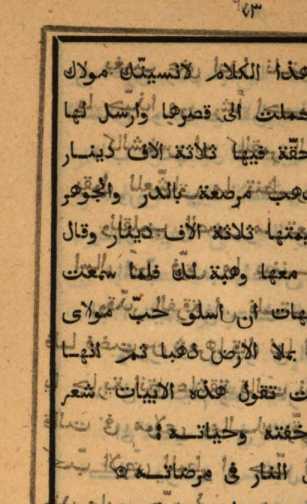 ٧٣
هذا الكلام لانسيتك مولاك
حملت الى قصرها وارسل لها
حقة فيها ثلاثة الاف دينار
ذهب مرصعة بالدر والجوهر
قيمتها ثلاثة الاف دينار وقال
معها وهبة لك فلما سمعت
ان اسلو حب مولاى
بملا الارض ذهبا ثم انها
تقول هذه الابيات شعر
خفته وحياته
النار فى مرضاته